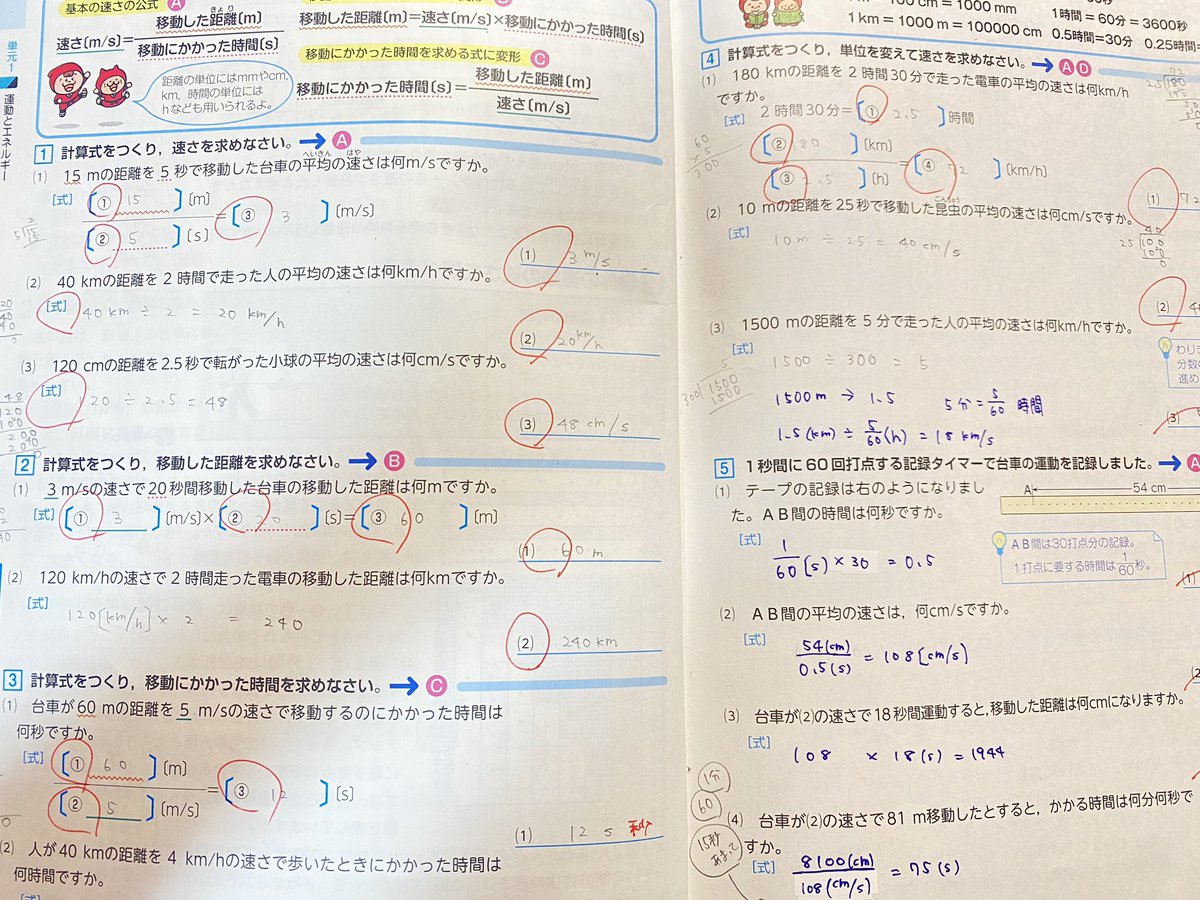 単元1
運動とエネルギー
基本の速さの公式 A
速さ〔m/s〕=移動した距離〔m〕/移動にかかった時間〔s〕
きょり
距離の単位にはmmやcm,
km, 時間の単位には
hなども用いられるよ。
移動した距離〔m〕=速さ〔m/s〕×移動にかかった時間〔s〕
移動にかかった時間を求める式に変形 C
移動にかかった時間〔s〕=移動した距離〔m〕/速さ〔m/s〕
1 計算式をつくり,速さを求めなさい。→A
へいきん はや
(1) 15 mの距離を5秒で移動した台車の平均の速さは何m/sですか。
[式] 【① 15 】〔m〕
【② 5 】〔s〕
=【③ 3 】〔m/s〕
(1) 3 m/s
(2) 40 kmの距離を2時間で走った人の平均の速さは何km/hですか。
[式] 40 km ÷ 2 = 20 km/h
(2) 20km/h
(3) 120 cmの距離を2.5秒で転がった小球の平均の速さは何cm/sですか。
[式] 120 ÷ 2.5 = 48
(3) 48 cm/s
2 計算式をつくり,移動した距離を求めなさい。→B
(1) 3 m/sの速さで20秒間移動した台車の移動した距離は何mですか。
[式] 【① 3 】〔m/s〕×【② 20 】〔s〕=【③ 60 】〔m〕
(1) 60 m
(2) 120 km/hの速さで2時間走った電車の移動した距離は何kmですか。
[式] 120[km/h] × 2 = 240
(2) 240 km
3 計算式をつくり,移動にかかった時間を求めなさい。→C
(1) 台車が60 mの距離を5 m/sの速さで移動するのにかかった時間は
何秒ですか。
[式] 【① 60 】〔m〕
【② 5 】〔m/s〕
=【③ 12 】〔s〕
(1) 12 s 秒
(2) 人が40 kmの距離を4 km/hの速さで歩いたときにかかった時間は
何時間ですか。
[式]
1 km=1000 m=100000 cm
1時間=60分=3600秒
0.5時間=30分
4 計算式をつくり,単位を変えて速さを求めなさい。→A D
(1) 180 kmの距離を2時間30分で走った電車の平均の速さは何km/h
ですか。
[式] 2時間30分=【① 2.5 】時間
【② 180 】〔km〕
【③ 2.5 】〔h〕
=【④ 72 】〔km/h〕
(1) 72
こんちゅう
(2) 10 mの距離を25秒で移動した昆虫の平均の速さは何cm/sですか。
[式] 10m ÷ 25 = 40 cm/s
(2)
(3) 1500 mの距離を5分で走った人の平均の速さは何km/hですか。
[式] 1500 ÷ 300 = 5
1500m → 1.5 5分=5/60 時間
1.5(km) ÷ 5/60(h) = 18 km/s
(3)
5 1秒間に60回打点する記録タイマーで台車の運動を記録しました。→A
(1) テープの記録は右のようになりまし
た。AB間の時間は何秒ですか。
A 54 cm
AB間は30打点分の記録。
1打点に要する時間は1/60秒。
[式] 1/60[s] × 30 = 0.5
(1)
(2) AB間の平均の速さは,何cm/sですか。
[式] 54(cm)/0.5(s) = 108[cm/s]
(3) 台車が(2)の速さで18秒間運動すると,移動した距離は何cmになりますか。
[式] 108 × 18(s) = 1944
1分
60
15秒
あまって
(4) 台車が(2)の速さで81 m移動したとすると,かかる時間は何分何秒で
すか。
[式] 8100(cm)/108(cm/s) = 75(s)